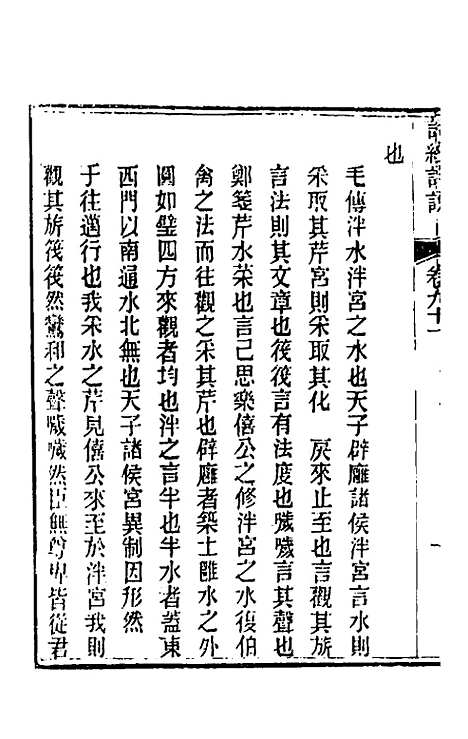 詩經
卷九十一
也
毛傳泮水泮宮之水也天子辟廱諸侯泮宮言水則
采取其芹宮則采取其化　戾來止至也言觀其旂
言法則其文章也筏筏言有法度也噦噦言其聲也
鄭箋芹水菜也言己思樂僖公之修泮宮之水復伯
禽之法而往觀之采其芹也辟廱者築土雝水之外
圓如璧四方來觀者均也泮之言半也半水者蓋東
西門以南通水北無也天子諸侯宮異制因形然
于往邁行也我采水之芹見僖公來至於泮宮我則
觀其旂筏筏然鸞和之聲噦噦然臣無尊卑皆從君